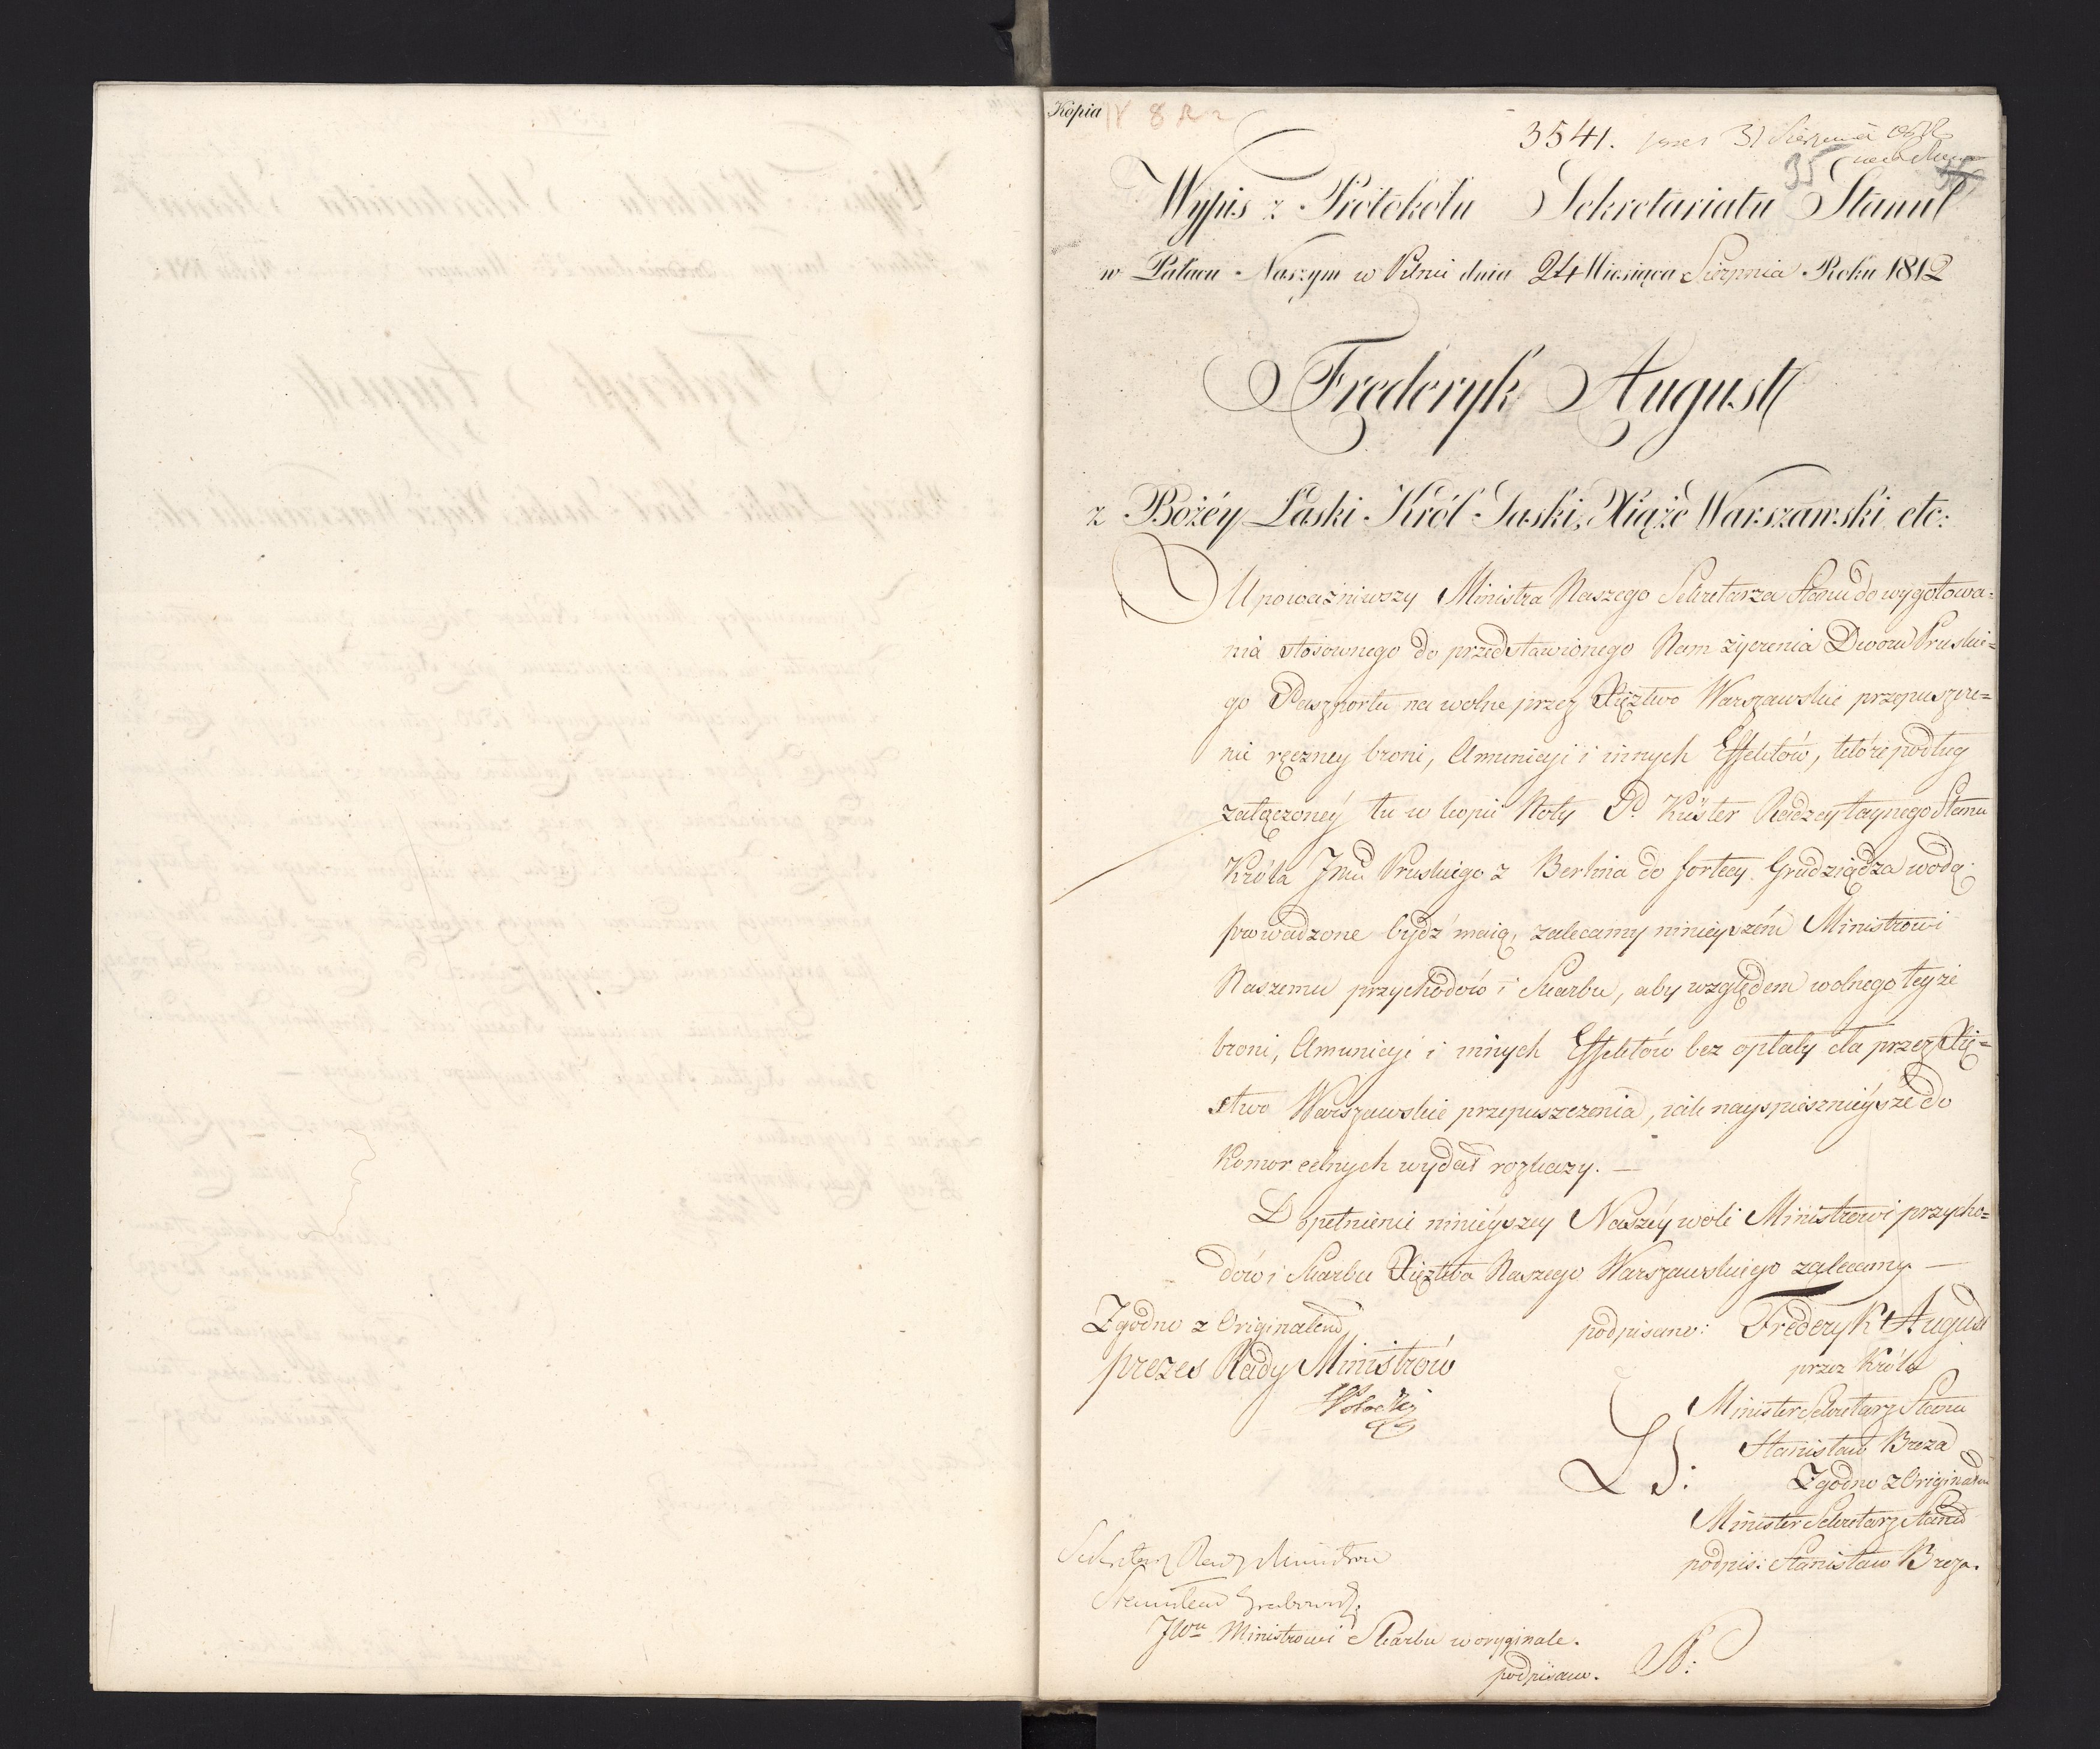 Kopia
3541.
35
Wypis z Protokółu Sekretariatu Stanu
w Pałacu Naszym w Pilnic dnia 24 Miesiąca Sierpnia Roku 1812
Frederyk August
z Bożéy Łaski Król Saski, Xiążę Warszawski etc:
Upoważniwszy Ministra Naszego Sekretarza Stanu do wygotowa=
nia stosownego do przedstawionego Nam życzenia Dworu Pruskie=
go Paszportu na wolne przez Xięztwo Warszawskie przepuszcze=
nie ręczney broni, Amunicyi i innych Effektów, które podług
załączonéy tu w kopii Noty P. Küster Radzcy taynego Stanu
Króla Jmci Pruskiego z Berlina do fortecy Grudziądza wodą
prowadzone bydź maią, zalecamy ninieyszém Ministrowi
Naszemu przychodów i Skarbu, aby względem wolnego teyże
broni, Amunicyi i innych Effektów bez opłaty cła przez Xię=
stwo Warszawskie przepuszczenia, iak nayspiesznieysze do
Komor celnych wydał rozkazy. —
Dopełnienie ninieyszey Naszéy woli Ministrowi przycho=
dów i Skarbu Xięztwa Naszego Warszawskiego zalecamy —
Zgodno z Originałem
podpisano: Frederyk August
prezes Rady Ministrów
przez Króla
Potocki
Minister Sekretarz Stanu
Stanisław Breza
LS:
Zgodno z Originałem
Minister Sekretarz Stanu
podpis: Stanisław Breza.
Sekretarz Rady Ministrów
Stanisław Grabowski
JWu Ministrowi Skarbu w oryginale.
podpisano.